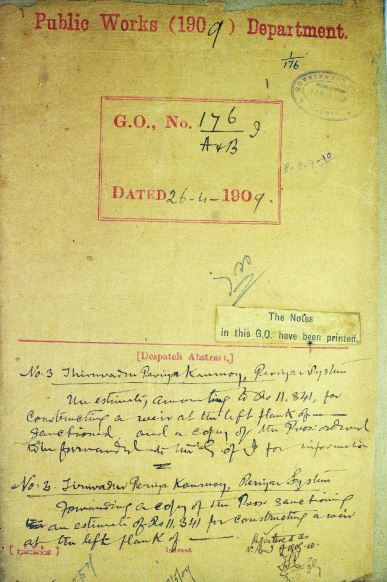 Public Works (1909) Department.
1/176
G.O., No. 176 I
A & B
DATED 26-4-1909.
The Notes
in this G.O. have been printed.
[Despatch Abstract.]
No. 3 Thiruvadur Periya Kanmoy, Periyar System
An estimate amounting to Rs 11,841, for
constructing a weir at the left flank of —
sanctioned and a copy of the Procs ordered
to be forwarded to the S of I for information
No. 3. Tiruvadur Periya Kanmoy, Periyar System
Forwarding a copy of the Procs. sanctioning
an estimate of Rs 11,841 for constructing a weir
at the left flank of —